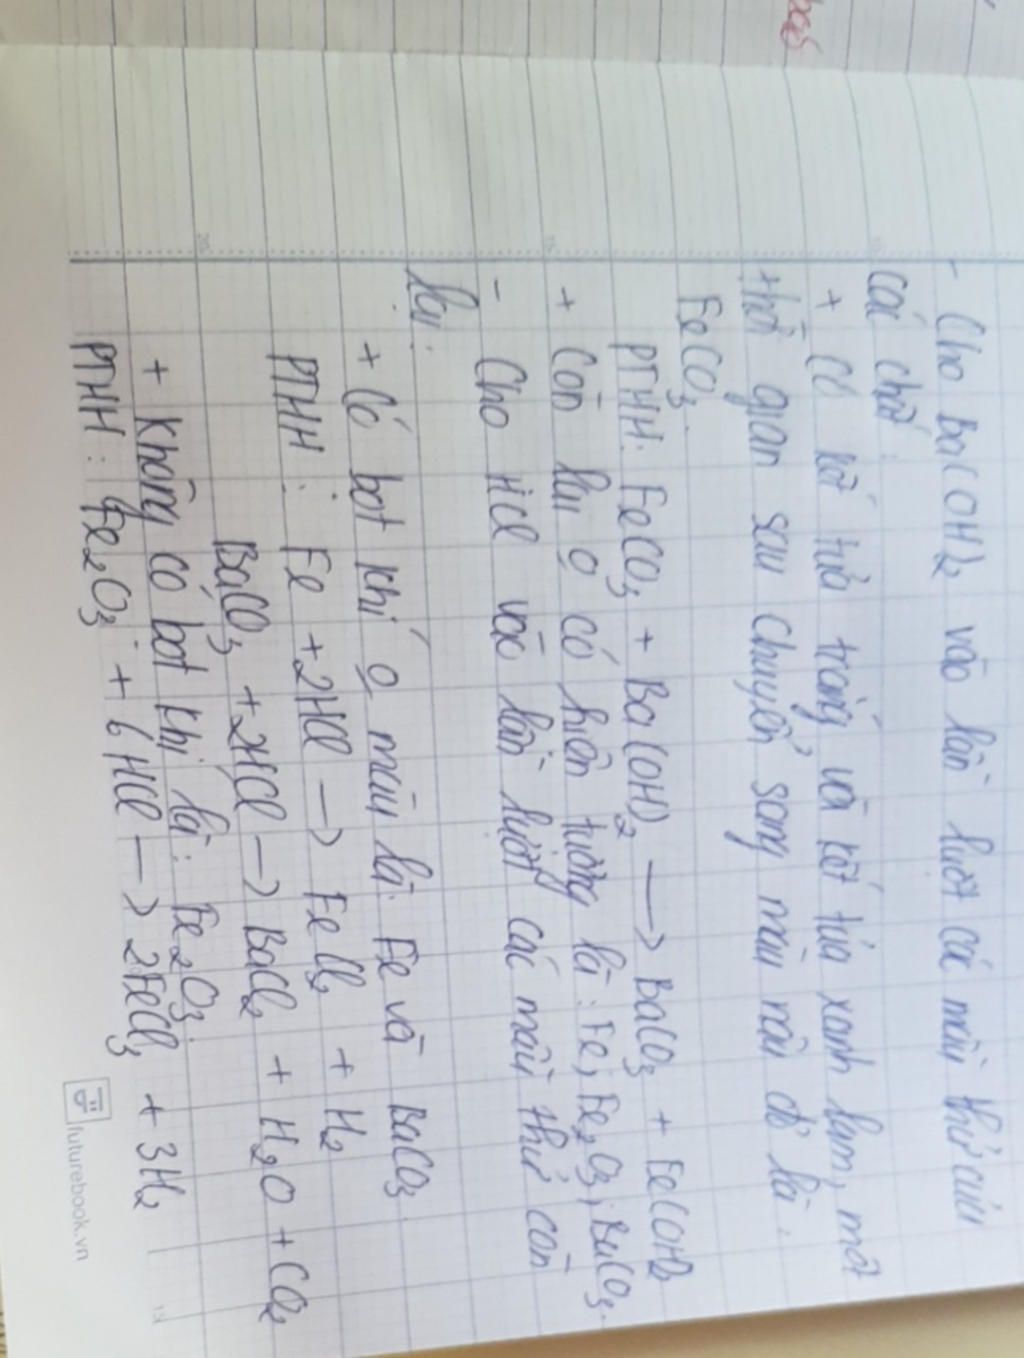 - Cho Ba(OH)₂ vào lần lượt các mẫu thử của
các chất.
+ Có kết tủa trắng và kết tủa xanh lam, một
thời gian sau chuyển sang màu nâu đỏ là.
FeCO₃.
PTHH: FeCO₃ + Ba(OH)₂ → BaCO₃ + Fe(OH)₂
+ Còn lại o có hiện tượng là: Fe, Fe₂O₃, BaCO₃.
- Cho HCl vào lần lượt các mẫu thử còn
lại:
+ Có bọt khí o màu là: Fe và BaCO₃.
PTHH: Fe + 2HCl → FeCl₂ + H₂
BaCO₃ + 2HCl → BaCl₂ + H₂O + CO₂
+ Không có bọt khí là: Fe₂O₃.
PTHH: Fe₂O₃ + 6HCl → 2FeCl₃ + 3H₂
futurebook.vn